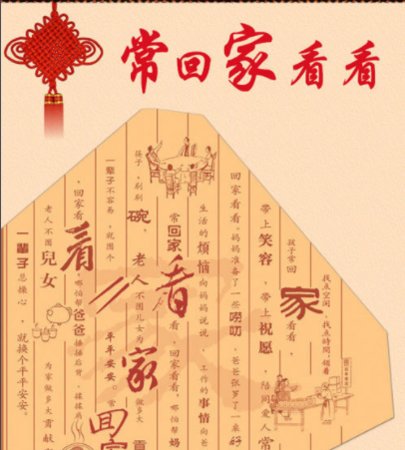 常回家看看
找点空闲，找点時間，領着
孩子常回家看看，
带上笑容，带上祝愿，陪同爱人常
回家看看。妈妈准备了一些唠叨，爸爸张罗了一桌好
生活的烦恼向妈妈说说 工作的事情向爸
常回家看看，回家看看，哪怕帮妈
筷子，刷刷碗，老人不图儿女为家做多大贡
一辈子不容易，就图个
回家看看，哪怕帮爸爸捶捶后背，揉揉肩
老人不圖兒女为家做多大贡献
一辈子总操心，就换个平平安安。
看看
家
回